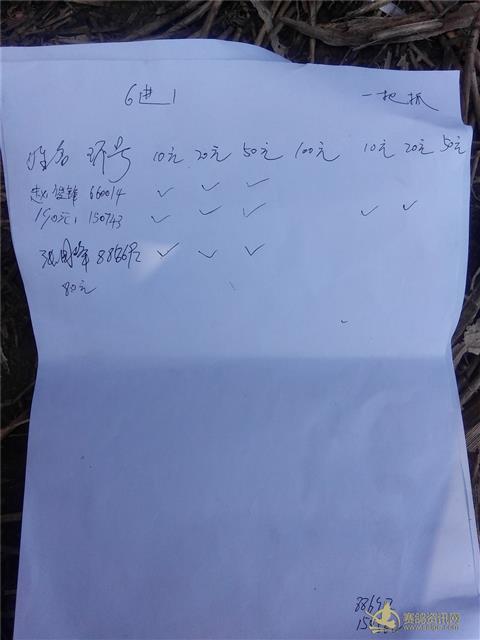 6进1 一把抓
姓名 环号 10元 20元 50元 100元 10元 20元 50元
赵 锋 660014 ✓ ✓ ✓
190元 150743 ✓ ✓ ✓ ✓ ✓
✓ ✓ ✓
80元
赛鸽资讯网